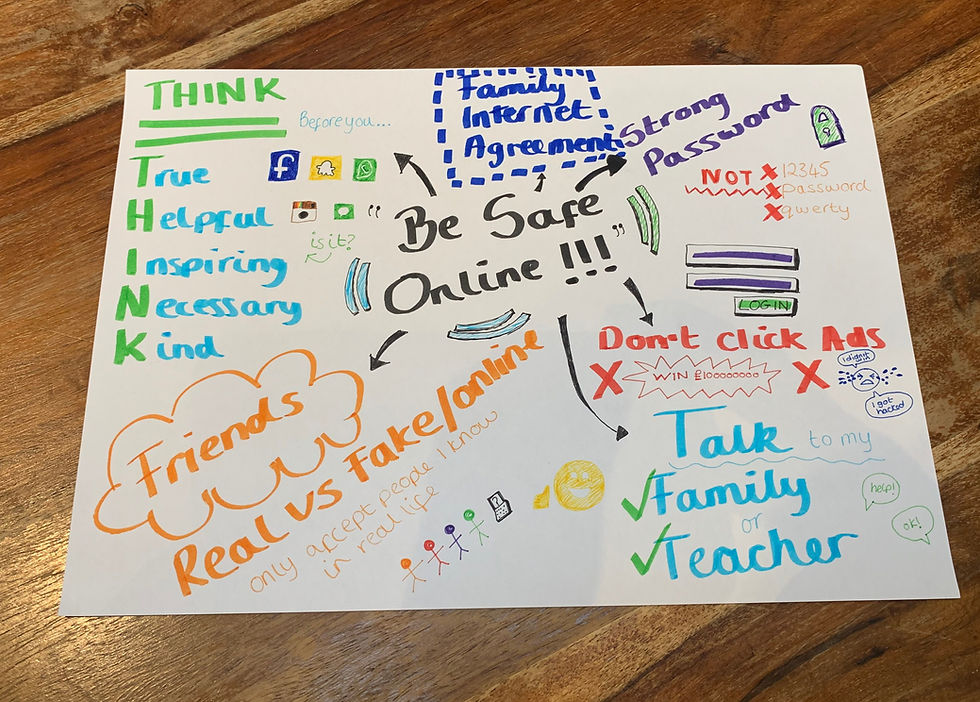 THINK
Before you...
True
Helpful
is it?
Inspiring
Necessary
Kind
Family
Internet
Agreement
Strong
Password
NOT x 12345
x password
x qwerty
"Be Safe
Online !!!"
LOGIN
Don't click Ads
X WIN £100000000 X
I didn't win
I got
hacked
Friends
Real vs Fake/online
only accept people I know
in real life
?
Talk to my
✓Family
or
✓Teacher
help!
ok!